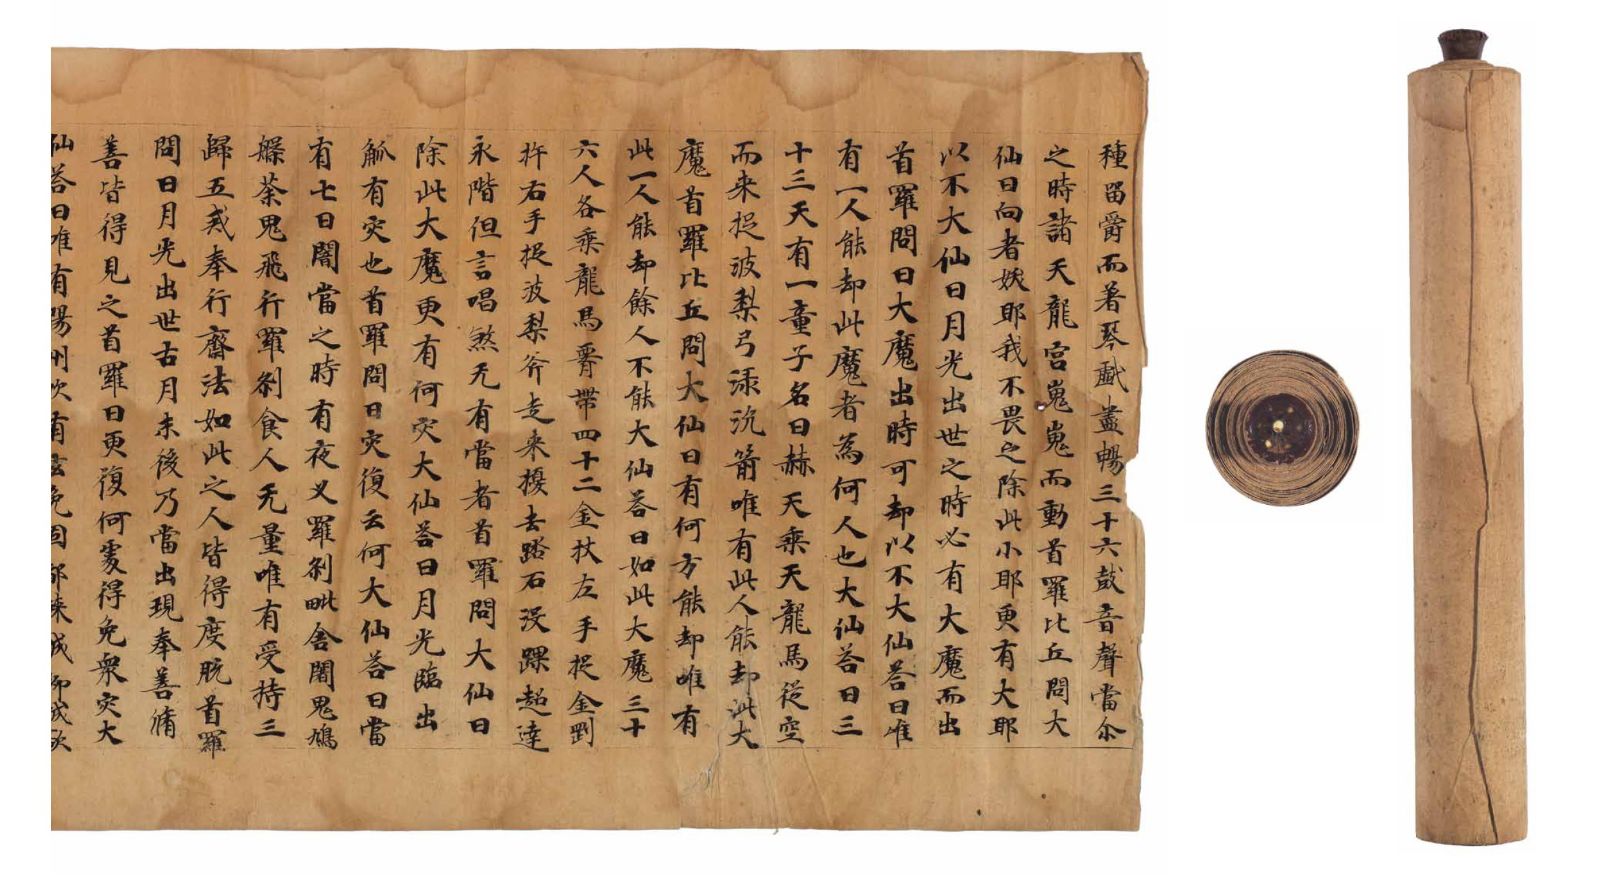 種留爵而著琴戲盡暢三十六鼓音聲當尒
之時諸天龍宮嵬嵬而動首羅比丘問大
仙曰向者妖耶我不畏之除此小耶更有大耶
以不大仙曰月光出世之時必有大魔而出
首羅問曰大魔出時可却以不大仙荅曰唯
有一人能却此魔者為何人也大仙荅曰三
十三天有一童子名曰赫天乘天龍馬從空
而来捉波梨弓箭唯有此人能却此大
魔首羅比丘問大仙曰有何方能却唯有
此一人能却餘人不能大仙荅曰如此大魔三十
六人各乘龍馬帶四十二金杖左手捉金剛
杵右手捉波梨斧走来擾去踏石没踝超達
永階但言唱煞无有當者首羅問大仙曰
除此大魔更有何灾大仙荅曰月光臨出
有灾也首羅問曰灾復云何大仙荅曰當
有七日闇當之時有夜叉羅刹毗舍闍鬼鳩
槃荼鬼飛行羅刹食人无量唯有受持三
歸五戒奉行齋法如此之人皆得度脱首羅
問曰月光出世古月末後乃當出現奉善脩
善皆得見之首羅曰更復何處得免衆灾大
仙荅曰唯有陽州